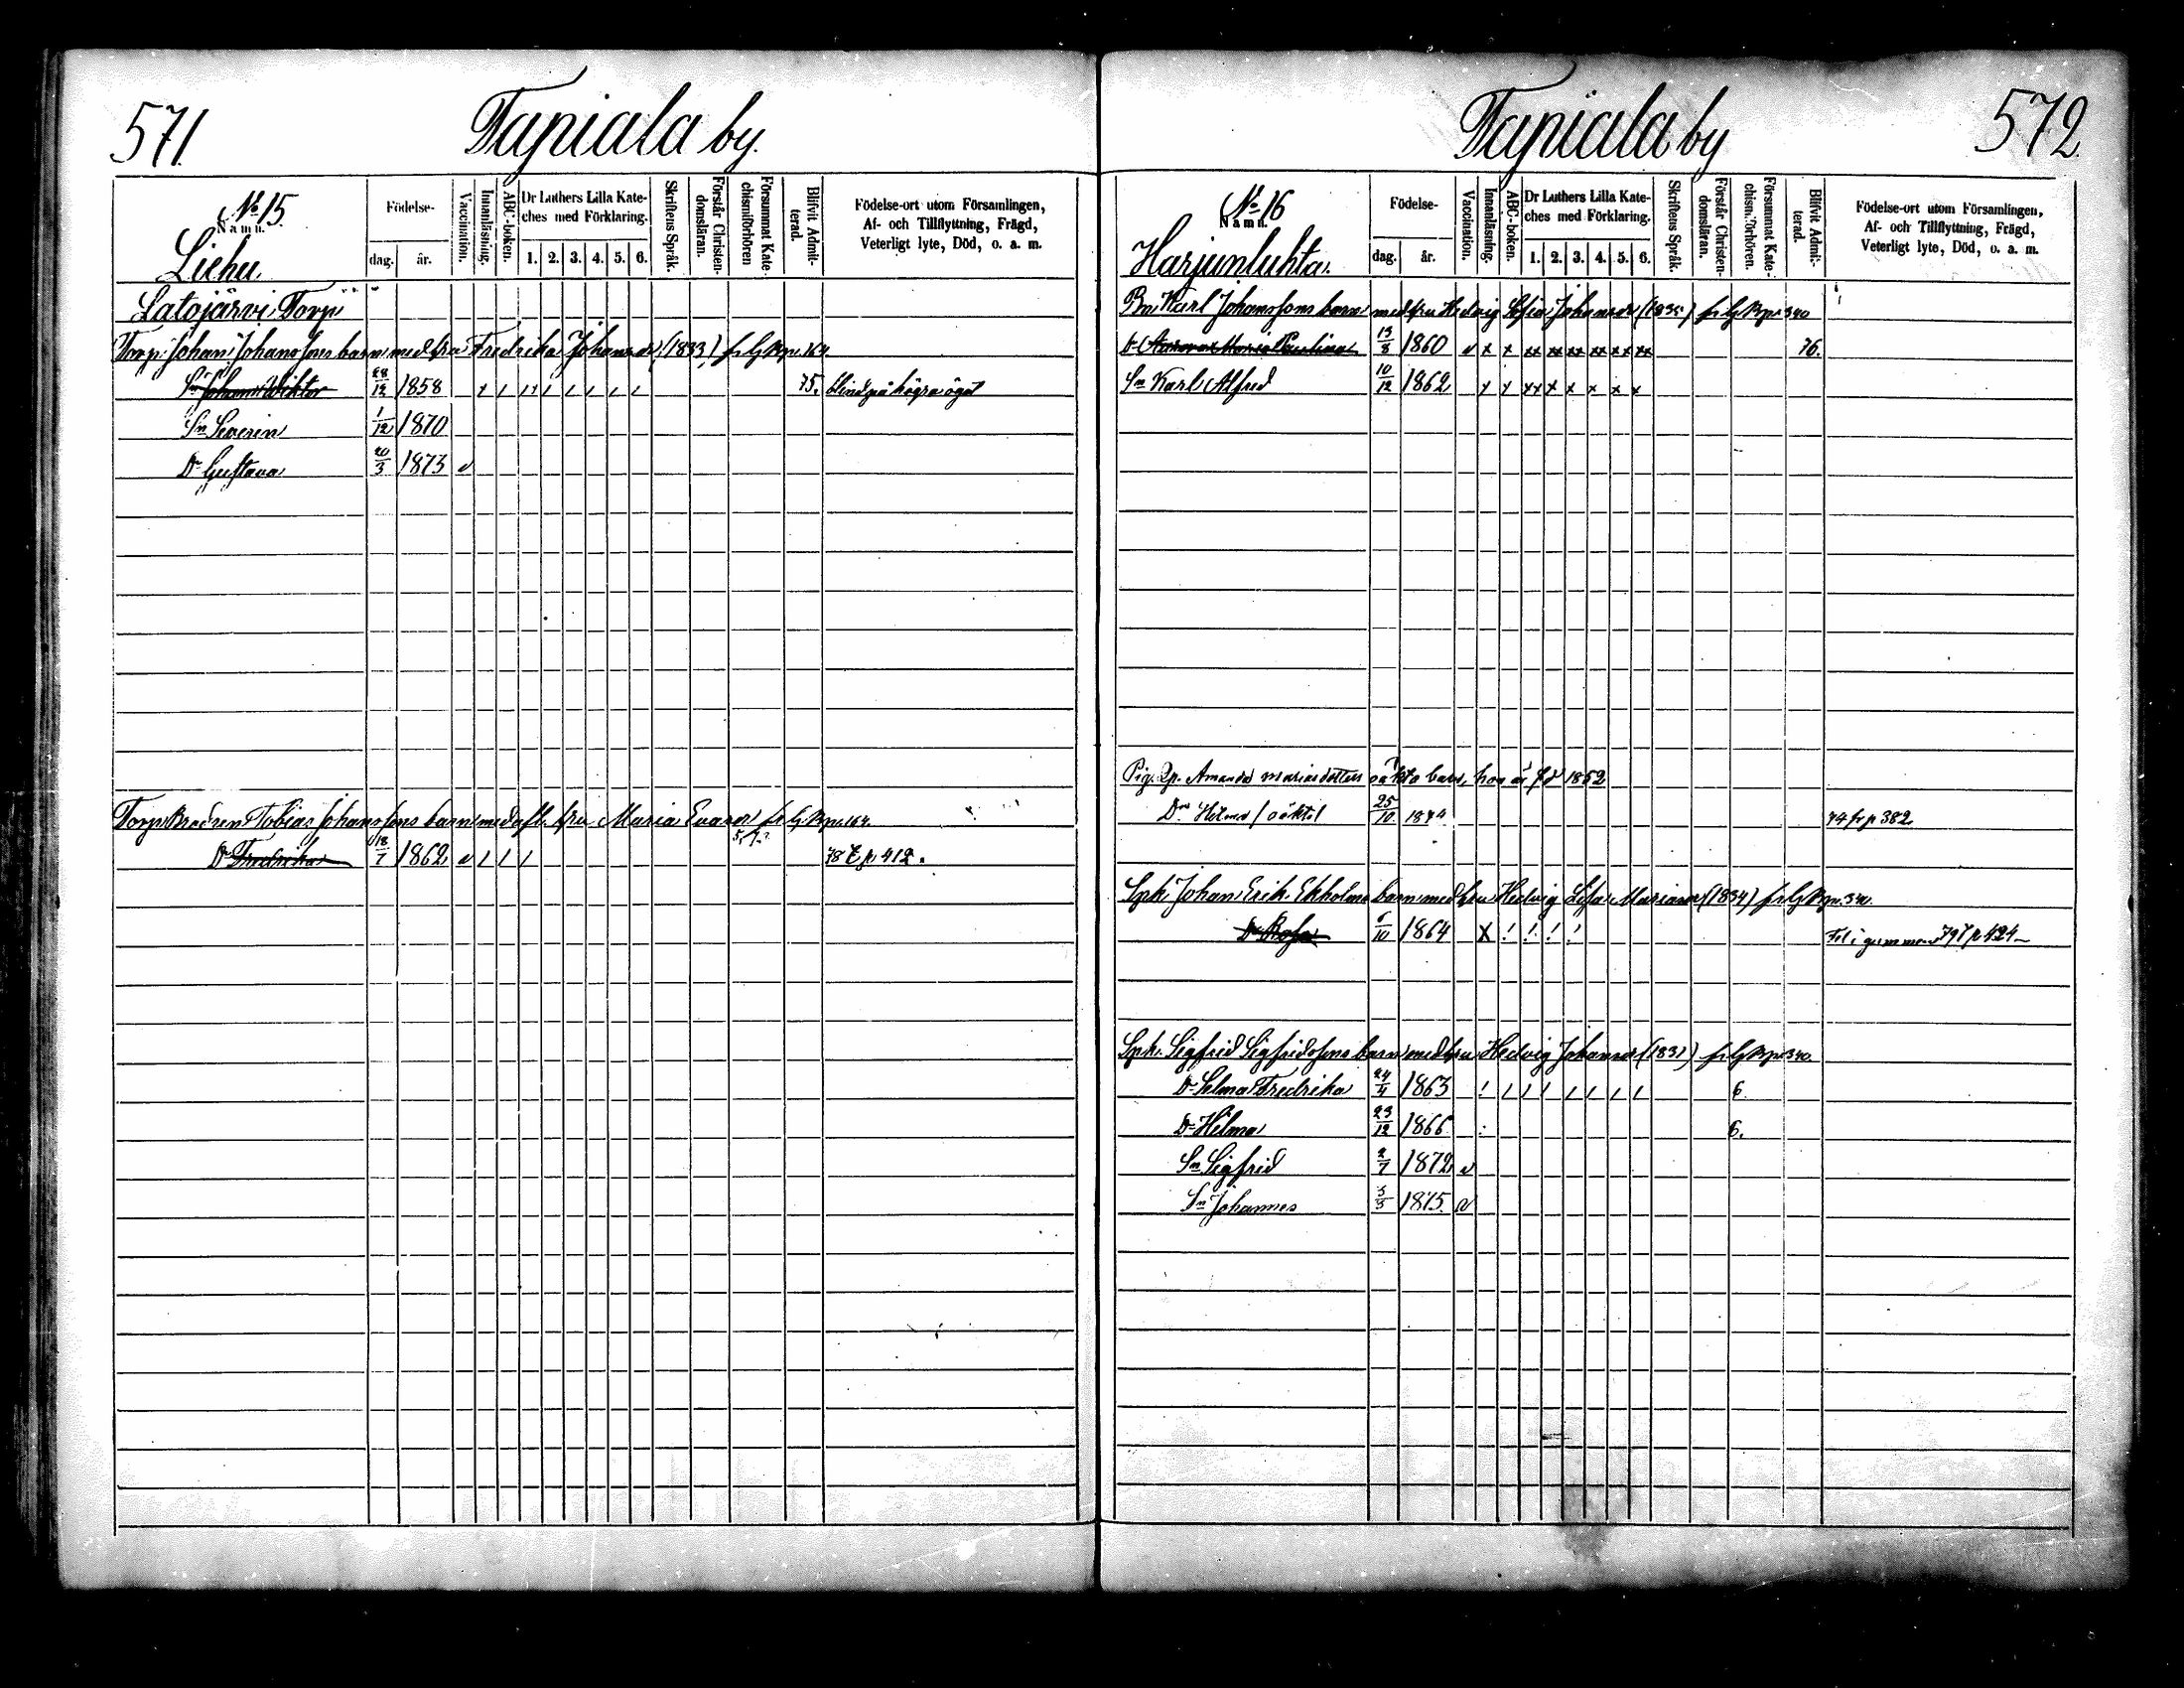 571.
Tapiala by.
No 15.
Namn.
Liehu
Födelse-
dag.
år.
Vaccination.
Innanläsning.
ABC-boken.
Dr Luthers Lilla Kate-
ches med Förklaring.
1. 2. 3. 4. 5. 6.
Skriftens Språk.
Förstår Christen-
domsläran.
Försummat Kate-
chismiförhören
Blifvit Admit-
terad.
Födelse-ort utom Församlingen,
Af- och Tillflyttning, Frägd,
Veterligt lyte, Död, o. a. m.
Latojärvi Torp
Torp. Johan Johanssons barn med hu Fredrika Johansdr (1833) fr lg Bpn. 164.
Sn Johan Wiktor 28/12 1858 75. blind på högra ögat
Sn Severin 1/12 1870
Dr Gustava 20/3 1873 v
Torp. Brodren Tobias Johanssons barn med afl. hu Maria Evasdr fr lg Bpn. 164.
Dr Fredrika 18/7 1862 v 78 t p 412.
572.
Tapiala by
No 16
Namn.
Harjunluhta.
Födelse-
dag.
år.
Vaccination.
Innanläsning.
ABC-boken.
Dr Luthers Lilla Kate-
ches med Förklaring.
1. 2. 3. 4. 5. 6.
Skriftens Språk.
Förstår Christen-
domsläran.
Försummat Kate-
chism.förhören.
Blifvit Admit-
terad.
Födelse-ort utom Församlingen,
Af- och Tillflyttning, Frägd,
Veterligt lyte, Död, o. a. m.
Bn. Karl Johanssons barn med hu Hedvig Sofia Johansdr (1835) fr lg Bpn 340
Maria Paulina 13/8 1860 v x x xx xx xx xx xx xx 76.
Sn Karl Alfred 10/12 1862 x x xx x x x x x
Pig. Amanda Mariasdotters oäkta barn, hon är fd 1852
Dr Helma /oäkta/ 25/10 1874 74 fr p 382
Spk. Johan Erik Ekholms barn med hu Hedvig Lisa Mariasdr (1834) fr lg Bpn. 340.
Dr Rosa 6/10 1864 X 79 t p 424
Spk. Sigfrid Sigfridssons barn med hu Hedvig Johansdr (1831) fr lg Bpn 340.
Dr Selma Fredrika 24/4 1863 6
Dr Helma 23/12 1866 6.
Sn Sigfrid 2/7 1872 v
Sn Johannes 5/5 1875. v